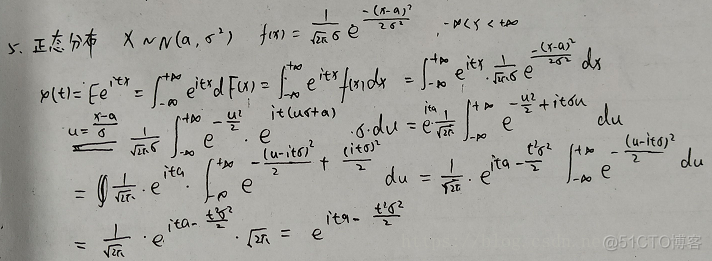 5. 正态分布 X~N(a, σ²) f(x) = 1/(√(2π)σ) e^(-(x-a)²/(2σ²)), -∞<x<+∞
φ(t) = Ee^(itx) = ∫_{-∞}^{+∞} e^(itx) dF(x) = ∫_{-∞}^{+∞} e^(itx) f(x)dx = ∫_{-∞}^{+∞} e^(itx) · 1/(√(2π)σ) e^(-(x-a)²/(2σ²)) dx
u = (x-a)/σ 1/(√(2π)σ) ∫_{-∞}^{+∞} e^(-u²/2) · e^(it(uσ+a)) · σ · du = e^(ita) · 1/√(2π) ∫_{-∞}^{+∞} e^(-u²/2 + itσu) du
= 1/√(2π) · e^(ita) · ∫_{-∞}^{+∞} e^(-(u-itσ)²/2 + (itσ)²/2) du = 1/√(2π) · e^(ita - t²σ²/2) ∫_{-∞}^{+∞} e^(-(u-itσ)²/2) du
= 1/√(2π) · e^(ita - t²σ²/2) · √(2π) = e^(ita - t²σ²/2)
@51CTO博客